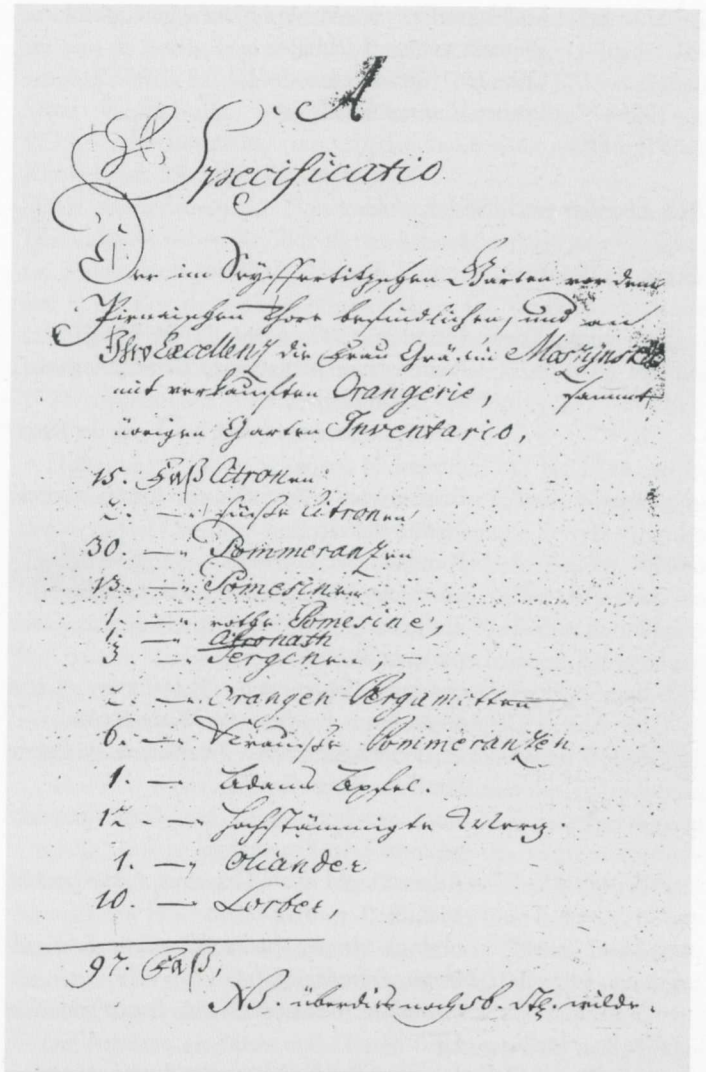 A
Specificatio
Der im Seyffertitzschen Garten vor dem
Pirnaischen Thore befindlichen, und an
Ihro Excellenz die Frau Gräfin Moszynska
mit verkaufften Orangerie, sammt
übrigen Garten Inventario,
15. Faß Citronen
2. — süße Citronen,
30. — Pommeranzen
13. — Pomesinen
1. — rothe Pomesine,
1. — Citronath
3. — Perginen, —
2. — Orangen Bergamotten
6. — Pommeranzen.
1. — Adams Apfel.
12 — hochstämmigte
1. — Oliander
10. — Lorber,
97. Faß,
NB. überdies noch 56. Stk. wilde.